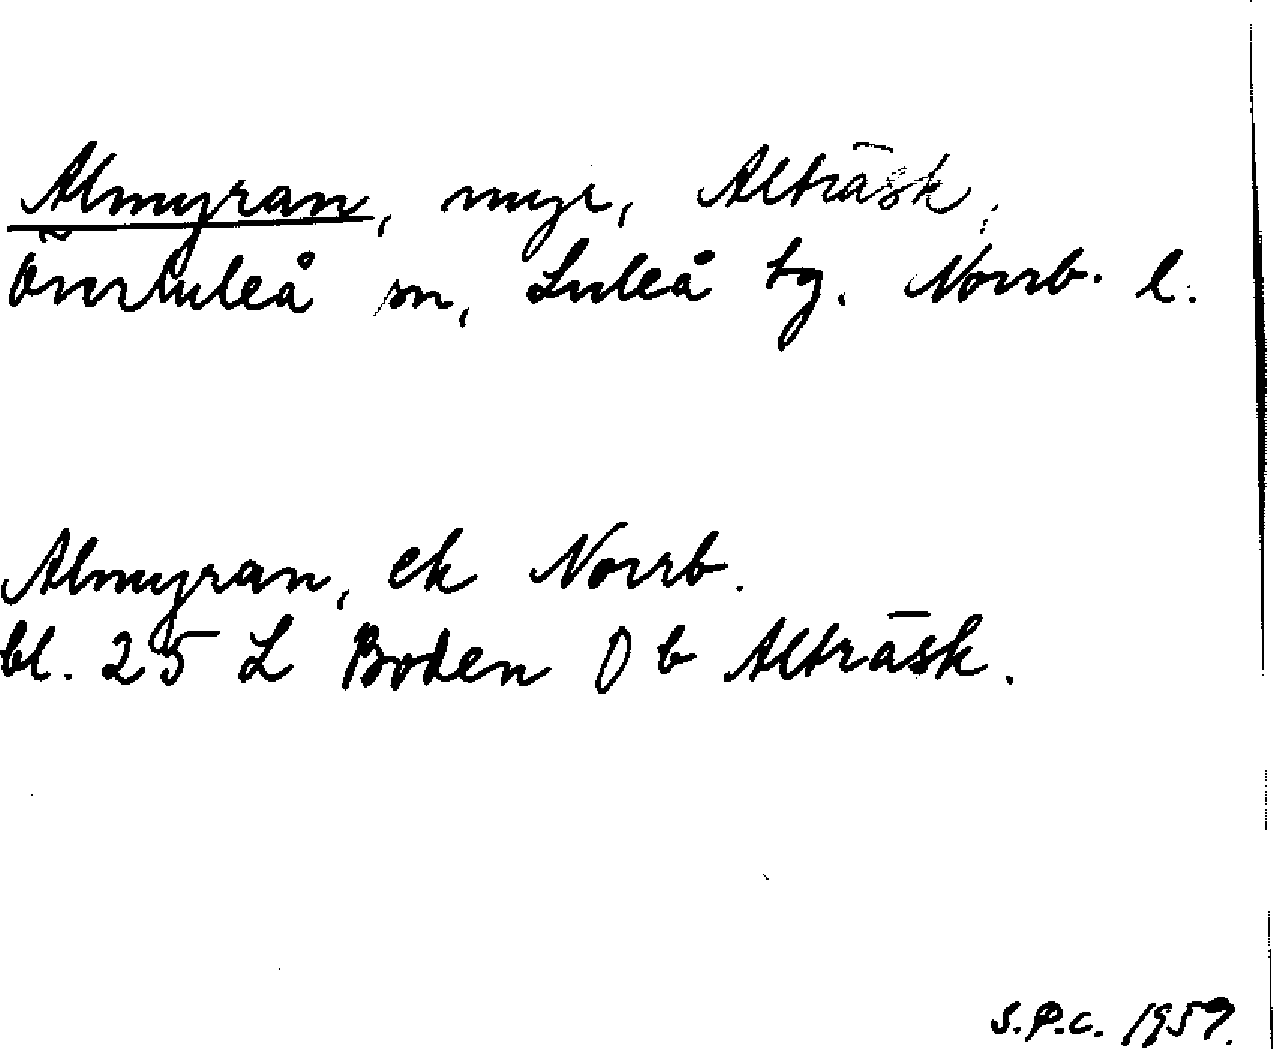 Almyran, myr, Alträsk,
Överluleå sn, Luleå tg. Norrb. l.
Almyran, ek Norrb.
bl. 25 L Boden Ob Alträsk.
S.P.C. 1959.